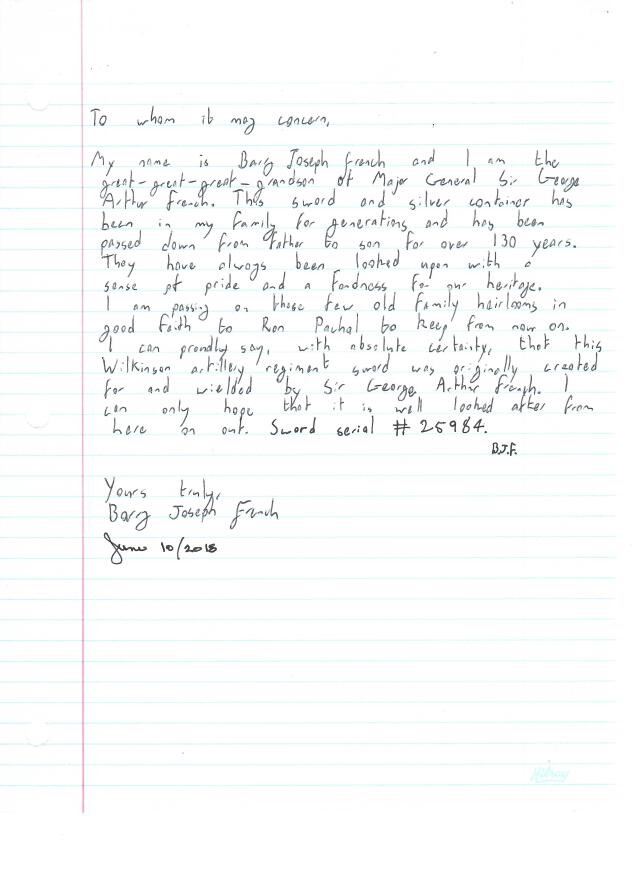 To whom it may concern,
My name is Barry Joseph French and I am the
great-great-great-grandson of Major General Sir George
Arthur French. This sword and silver container has
been in my family for generations and has been
passed down from father to son for over 130 years.
They have always been looked upon with a
sense of pride and a fondness for our heritage.
I am passing on these few old family heirlooms in
good faith to Ron Pachal to keep from now on.
I can proudly say, with absolute certainty, that this
Wilkinson artillery regiment sword was originally created
for and wielded by Sir George Arthur French. I
can only hope that it is well looked after from
here on out. Sword serial # 25984.
B.J.F.
Yours truly,
Barry Joseph French
June 10/2018
Hilroy